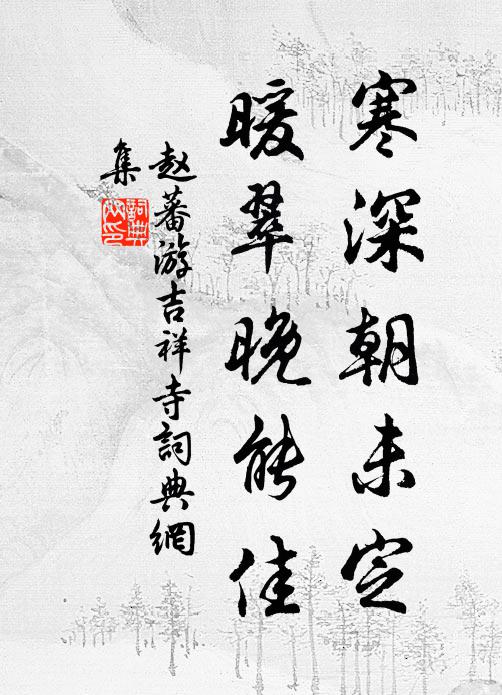 寒深朝未定
暖翠晚能佳
赵蕃游吉祥寺詞典網
集
詞典網印